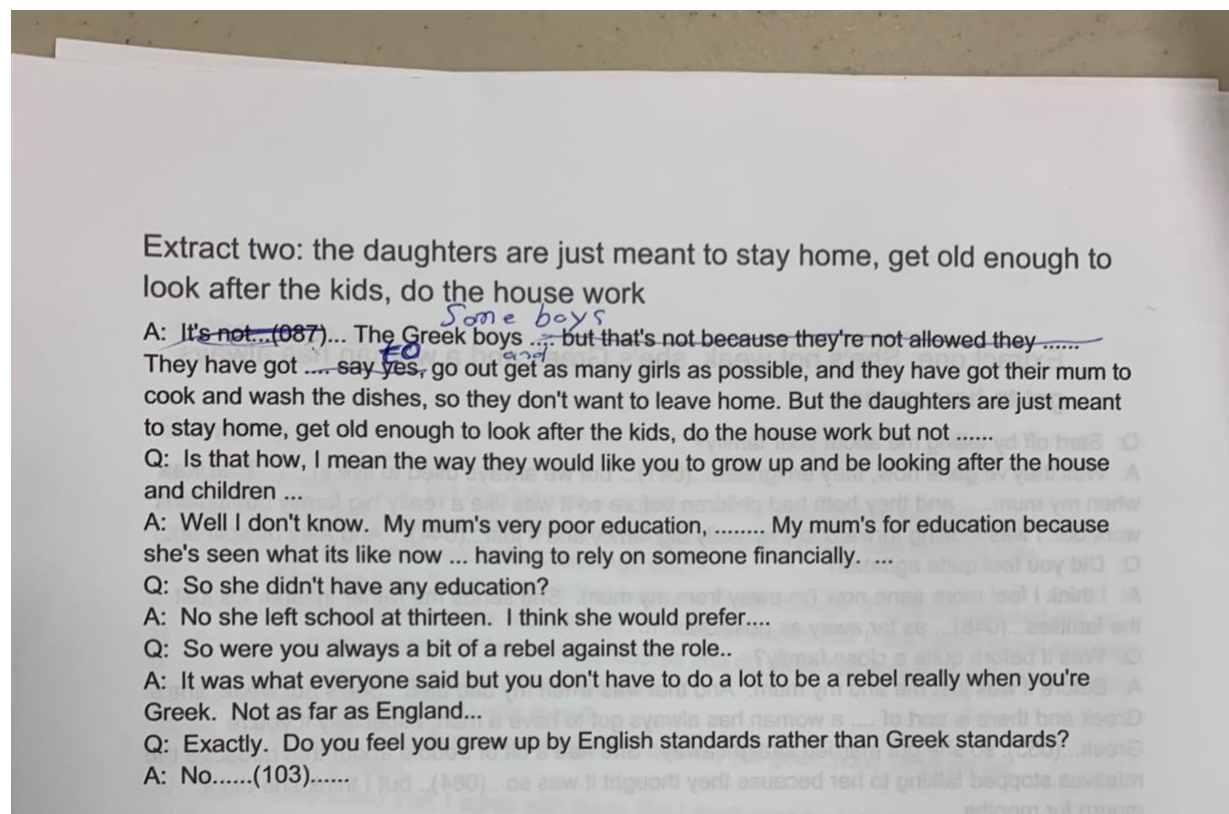 Extract two: the daughters are just meant to stay home, get old enough to
look after the kids, do the house work
Some boys
A: It's not...(087)... The Greek boys .... but that's not because they're not allowed they ......
to and
They have got .... say yes, go out get as many girls as possible, and they have got their mum to
cook and wash the dishes, so they don't want to leave home. But the daughters are just meant
to stay home, get old enough to look after the kids, do the house work but not ......
Q: Is that how, I mean the way they would like you to grow up and be looking after the house
and children ...
A: Well I don't know. My mum's very poor education, ........ My mum's for education because
she's seen what its like now ... having to rely on someone financially. ...
Q: So she didn't have any education?
A: No she left school at thirteen. I think she would prefer....
Q: So were you always a bit of a rebel against the role..
A: It was what everyone said but you don't have to do a lot to be a rebel really when you're
Greek. Not as far as England...
Q: Exactly. Do you feel you grew up by English standards rather than Greek standards?
A: No......(103)......